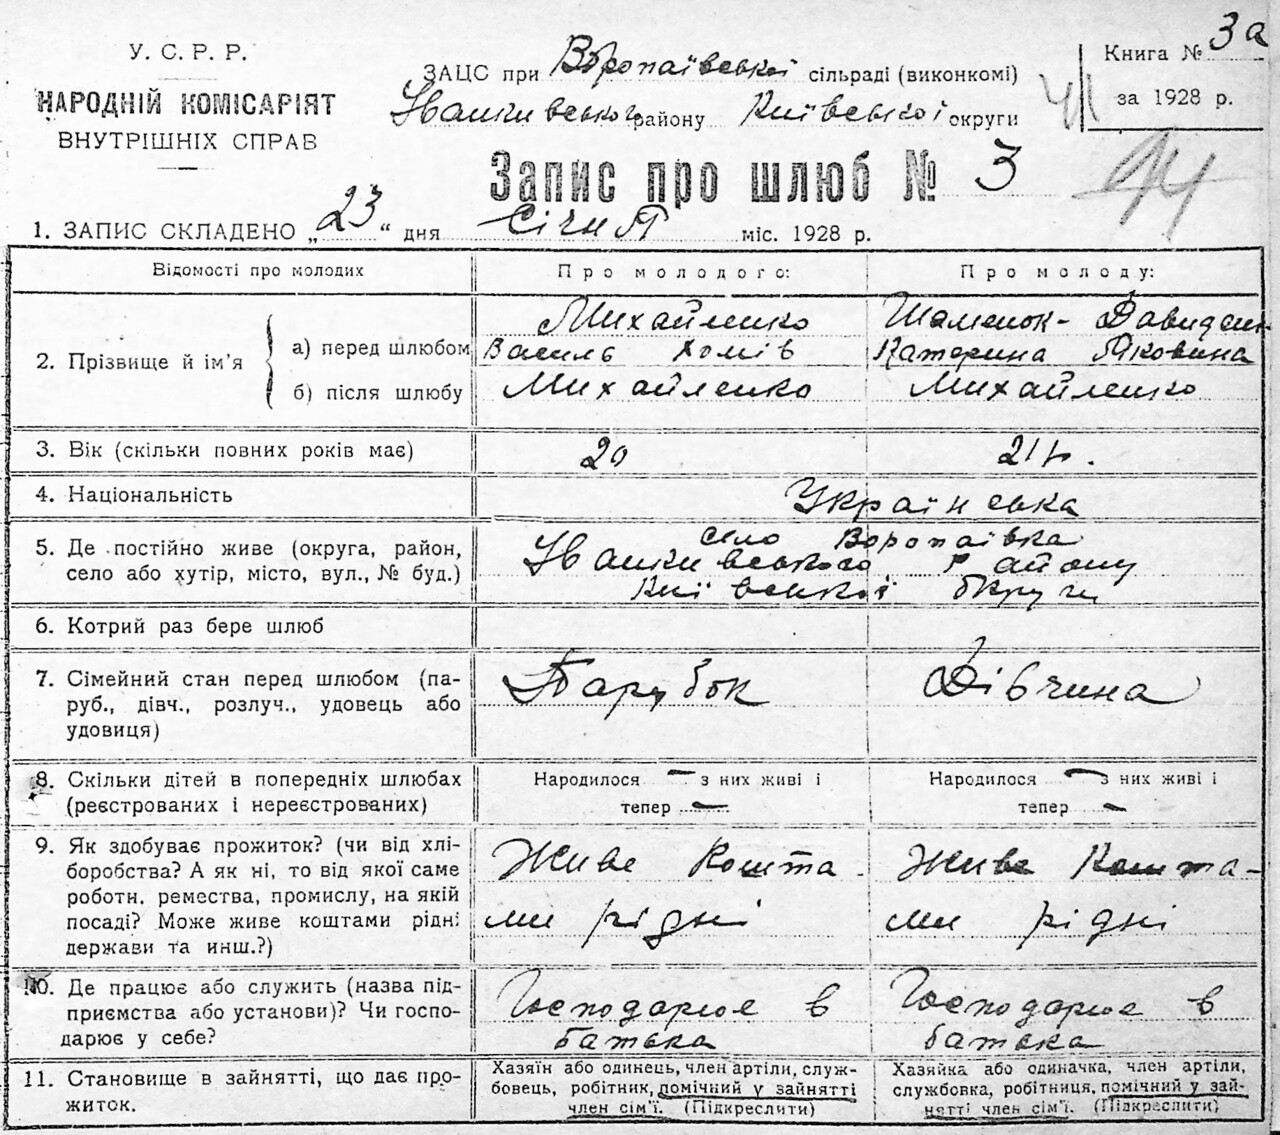 У. С. Р. Р.
НАРОДНІЙ КОМІСАРІЯТ
ВНУТРІШНІХ СПРАВ
ЗАЦС при Воропаївської сільраді (виконкомі)
Іванківського району Київської округи
Книга № 3а
за 1928 р.
41
94
Запис про шлюб № 3
1. ЗАПИС СКЛАДЕНО „23“ дня Січня міс. 1928 р.
Відомості про молодих
Про молодого:
Про молоду:
2. Прізвище й ім’я
а) перед шлюбом
Михайленко
Василь Хомів
Шаменок- Давиденко
Катерина Яковина
б) після шлюбу
Михайленко
Михайленко
3. Вік (скільки повних років має)
20
21 р.
4. Національність
Українська
5. Де постійно живе (округа, район,
село або хутір, місто, вул., № буд.)
село Воропаївка
Іванківського району
Київської округи
6. Котрий раз бере шлюб
7. Сімейний стан перед шлюбом (па-
руб., дівч., розлуч., удовець або
удовиця)
Парубок
Дівчина
8. Скільки дітей в попередніх шлюбах
(реєстрованих і нереєстрованих)
Народилося — з них живі і
тепер —
Народилося — з них живі і
тепер —
9. Як здобуває прожиток? (чи від хлі-
боробства? А як ні, то від якої саме
роботи. ремества, промислу, на якій
посаді? Може живе коштами рідні
держави та инш.?)
Живе кошта-
ми рідні
Живе кошта-
ми рідні
10. Де працює або служить (назва під-
приємства або установи)? Чи госпо-
дарює у себе?
Господарює в
батька
Господарює в
батька
11. Становище в зайнятті, що дає про-
житок.
Хазяїн або одинець, член артілі, служ-
бовець, робітник, помічний у зайнятті
член сім’ї. (Підкреслити)
Хазяйка або одиначка, член артіли,
службовка, робітниця, помічний у зай-
нятті член сім’ї. (Підкреслити)